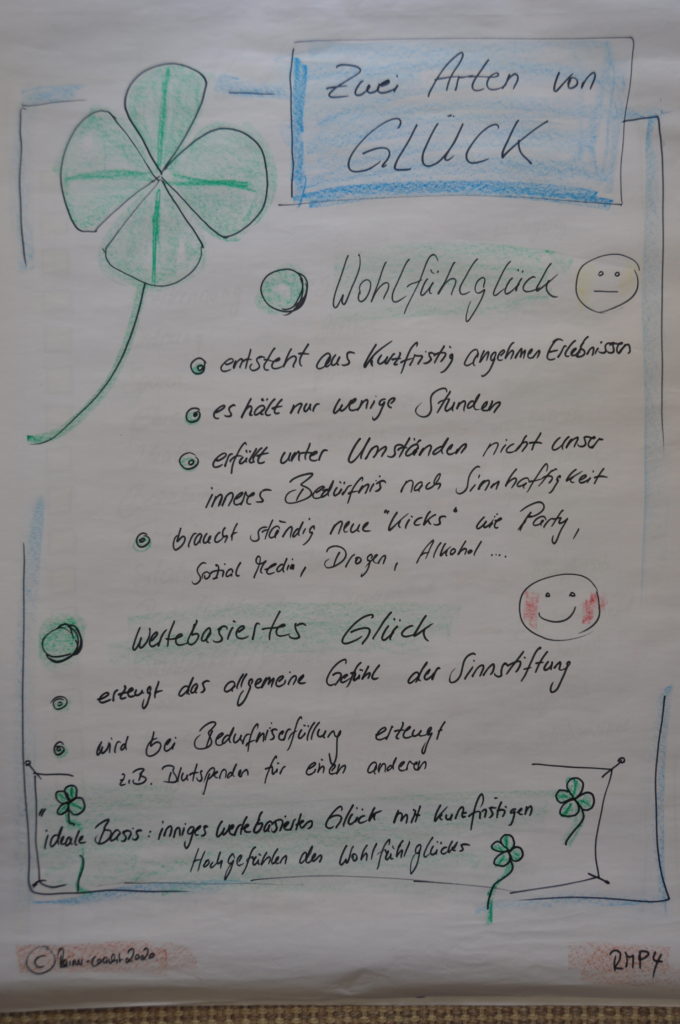 Zwei Arten von
GLÜCK
Wohlfühlglück
entsteht aus Kurzfristig angehmen Erlebnissen
es hält nur wenige Stunden
erfüllt unter Umständen nicht unser
inneres Bedürfnis nach Sinnhaftigkeit
braucht ständig neue "Kicks" wie Party,
Sozial Media, Drogen, Alkohol ....
Wertebasiertes Glück
erzeugt das allgemeine Gefühl der Sinnstiftung
wird bei Bedurfniserfüllung erzeugt
z.B. Blutspenden für einen anderen
"ideale Basis: inniges wertebasiertes Glück mit Kurzfristigen
Hochgefühlen des Wohlfühlglücks
© 2020
RMP4